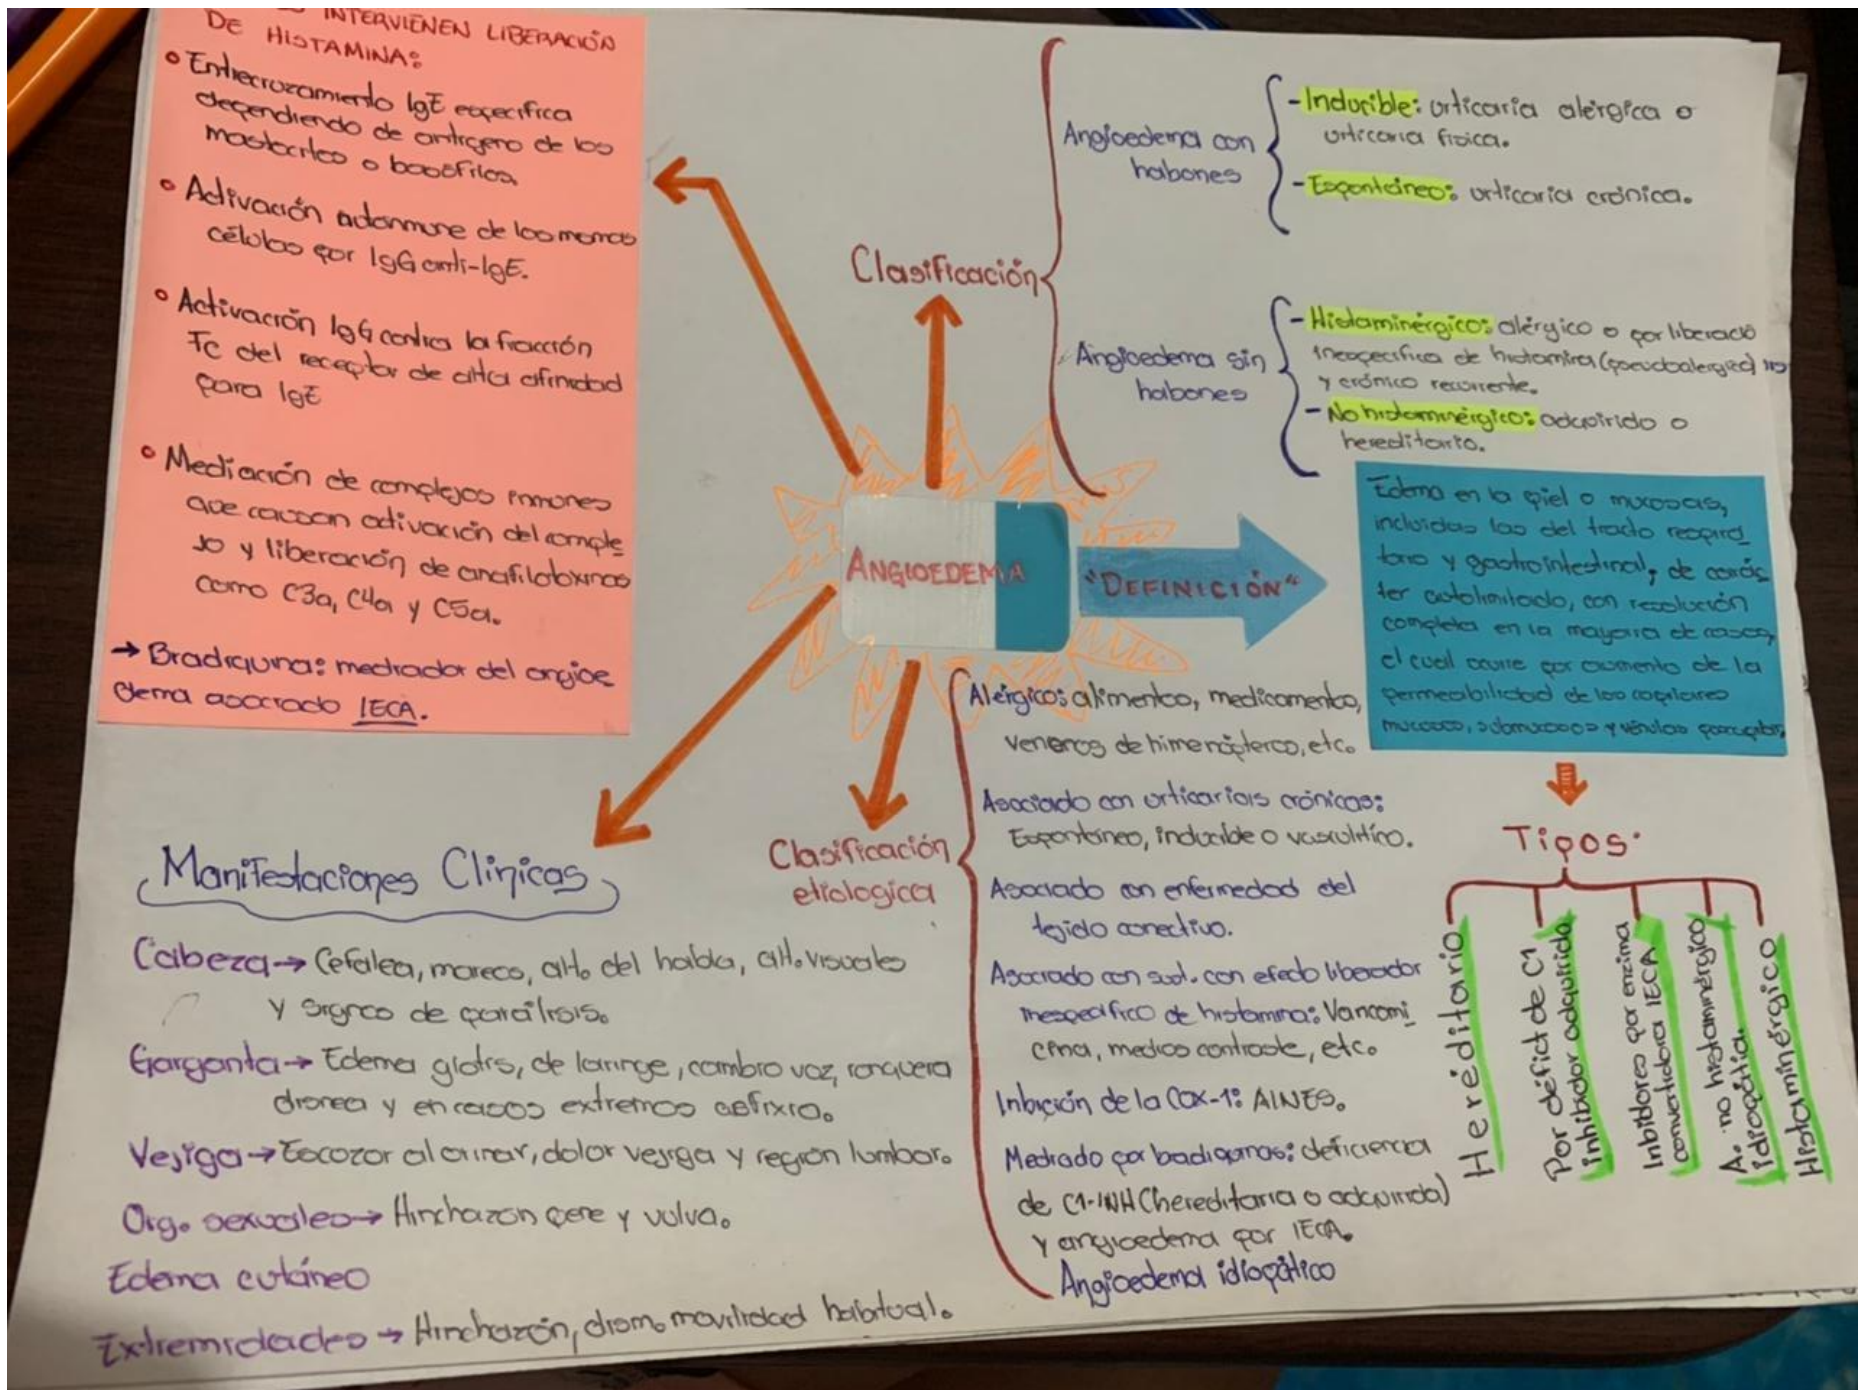 INTERVIENEN LIBERACIÓN
DE HISTAMINA:
• Entrecruzamiento IgE especifica
dependiendo de antigeno de los
mastocitos o basófilos.
• Activación autoinmune de las mismas
células por IgG anti-IgE.
• Activación IgG contra la fracción
Fc del receptor de alta afinidad
para IgE
• Mediación de complejos inmunes
que causan activación del comple
jo y liberación de anafilotoxinas
como C3a, C4a y C5a.
→ Bradiquina: mediador del angioe
dema asociado IECA.
Clasificación
Angioedema con
habones
- Inducible: urticaria alérgica o
urticaria fisica.
- Espontáneo: urticaria crónica.
Angioedema sin
habones
- Histaminérgico: alérgico o por liberació
inespecifica de histamina (pseudoalergico)
y crónico recurrente.
- No histaminérgico: adquirido o
hereditario.
ANGIOEDEMA
"DEFINICIÓN"
Edema en la piel o mucosas,
incluidas las del tracto respira
torio y gastrointestinal, de carác
ter autolimitado, con resolución
completa en la mayoria de casos,
el cual ocurre por aumento de la
permeabilidad de los capilares
mucosos, submucosos y vénulas
Tipos.
Hereditario
Por déficit de C1
inhibidor adquirido
Inhibidores por enzima
convertidora IECA
A. no histaminérgico
idiopático.
Histaminérgico
Clasificación
etiologica
Alérgico: alimentos, medicamentos,
venenos de himenópteros, etc.
Asociado con urticariais crónicas:
Espontáneo, inducible o vasculitico.
Asociado con enfermedad del
tejido conectivo.
Asociado con sust. con efecto liberador
inespecifico de histamina: Vancomi
cina, medios contraste, etc.
Inbición de la COX-1: AINES.
Mediado por badiquinas: deficiencia
de C1-INH (hereditaria o adquirida)
y angioedema por IECA.
Angioedema idiopático
Manifestaciones Clinicas
Cabeza → Cefalea, mareos, alt. del habla, alt. visuales
y signos de parálisis.
Garganta → Edema glotis, de laringe, cambio voz, ronquera
disnea y en casos extremos asfixia.
Vejiga → Escozor al orinar, dolor vejiga y región lumbar.
Org. sexuales → Hinchazon pene y vulva.
Edema cutáneo
Extremidades → Hinchazón, dism. movilidad habitual.